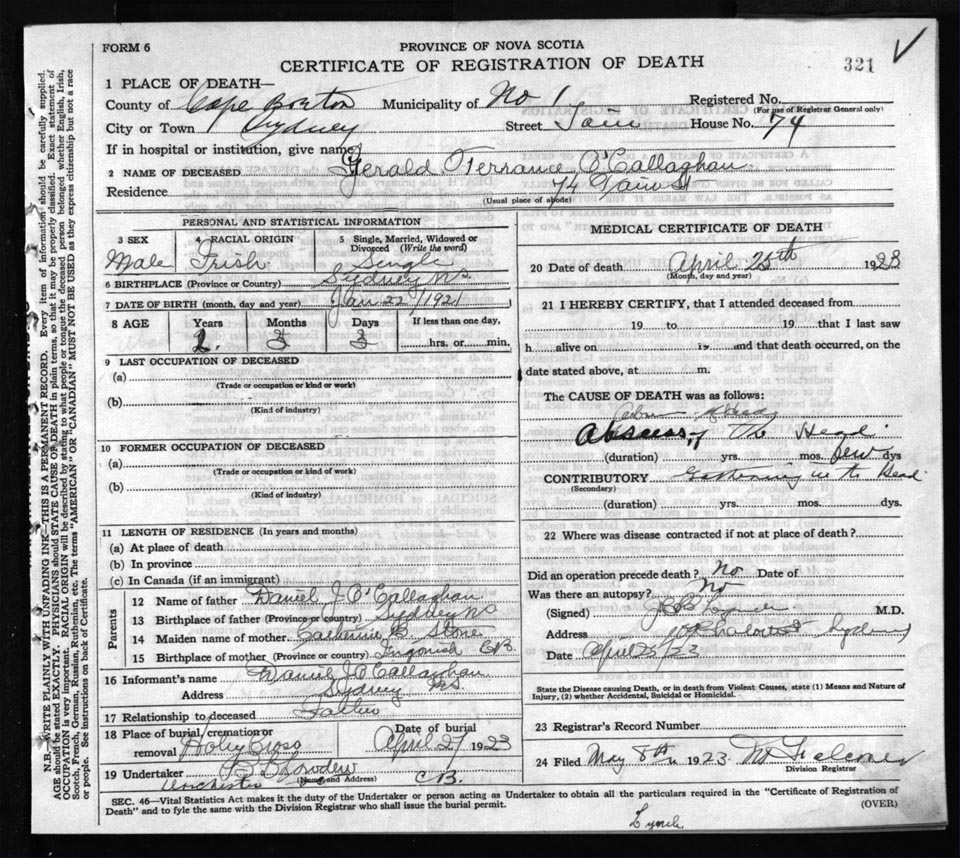 FORM 6
PROVINCE OF NOVA SCOTIA
CERTIFICATE OF REGISTRATION OF DEATH
321
1 PLACE OF DEATH—
County of Cape Breton Municipality of No 1 Registered No.
(For use of Registrar General only)
City or Town Sydney Street House No. 74
If in hospital or institution, give name
2 NAME OF DECEASED Gerald Terrance O'Callaghan
Residence 74 St
(Usual place of abode)
PERSONAL AND STATISTICAL INFORMATION
3 SEX
Male
4 RACIAL ORIGIN
Irish
5 Single, Married, Widowed or Divorced (Write the word)
Single
6 BIRTHPLACE (Province or Country) Sydney NS
7 DATE OF BIRTH (month, day and year) Jan 22/1921
8 AGE
Years
2
Months
3
Days
3
If less than one day,
hrs. or min.
9 LAST OCCUPATION OF DECEASED
(a)
(Trade or occupation or kind or work)
(b)
(Kind of industry)
10 FORMER OCCUPATION OF DECEASED
(a)
(Trade or occupation or kind of work)
(b)
(Kind of industry)
11 LENGTH OF RESIDENCE (In years and months)
(a) At place of death
(b) In province
(c) In Canada (if an immigrant)
Parents
12 Name of father Daniel J. O'Callaghan
13 Birthplace of father (Province or country) Sydney NS
14 Maiden name of mother Catherine Stone
15 Birthplace of mother (Province or country) Ingonish CB
16 Informant's name Daniel J O'Callaghan
Address Sydney NS
17 Relationship to deceased Father
18 Place of burial, cremation or removal Holy Cross
Date of burial
April 27 1923
19 Undertaker
(Name and Address)
CB.
MEDICAL CERTIFICATE OF DEATH
20 Date of death April 25th 1923
(Month, day and year)
21 I HEREBY CERTIFY, that I attended deceased from
19 to 19 that I last saw
h alive on 19 and that death occurred, on the
date stated above, at m.
The CAUSE OF DEATH was as follows:
Abscess of the Head
(duration) yrs. mos. few dys
CONTRIBUTORY in the Head
(Secondary)
(duration) yrs. mos. dys.
22 Where was disease contracted if not at place of death?
Did an operation precede death? No Date of
Was there an autopsy? No
(Signed) M.D.
Address Sydney
Date April 25/23
State the Disease causing Death, or in death from Violent Causes, state (1) Means and Nature of
Injury, (2) whether Accidental, Suicidal or Homicidal.
23 Registrar's Record Number
24 Filed May 8th 1923
Division Registrar
SEC. 46—Vital Statistics Act makes it the duty of the Undertaker or person acting as Undertaker to obtain all the particulars required in the "Certificate of Registration of
Death" and to fyle the same with the Division Registrar who shall issue the burial permit.
(OVER)
Lynch
N.B.—WRITE PLAINLY WITH UNFADING INK—THIS IS A PERMANENT RECORD. Every item of information should be carefully supplied.
AGE should be stated EXACTLY. PHYSICIANS should STATE CAUSE OF DEATH in plain terms, so that it may be properly classified. Exact statement of
OCCUPATION is very important. RACIAL ORIGIN will be described by stating to what people or tongue the deceased person belonged whether English, Irish,
Scotch, French, German, Russian, Ruthenian, etc. The terms "AMERICAN" or "CANADIAN" MUST NOT BE USED as they express citizenship but not a race
or people. See instructions on back of Certificate.